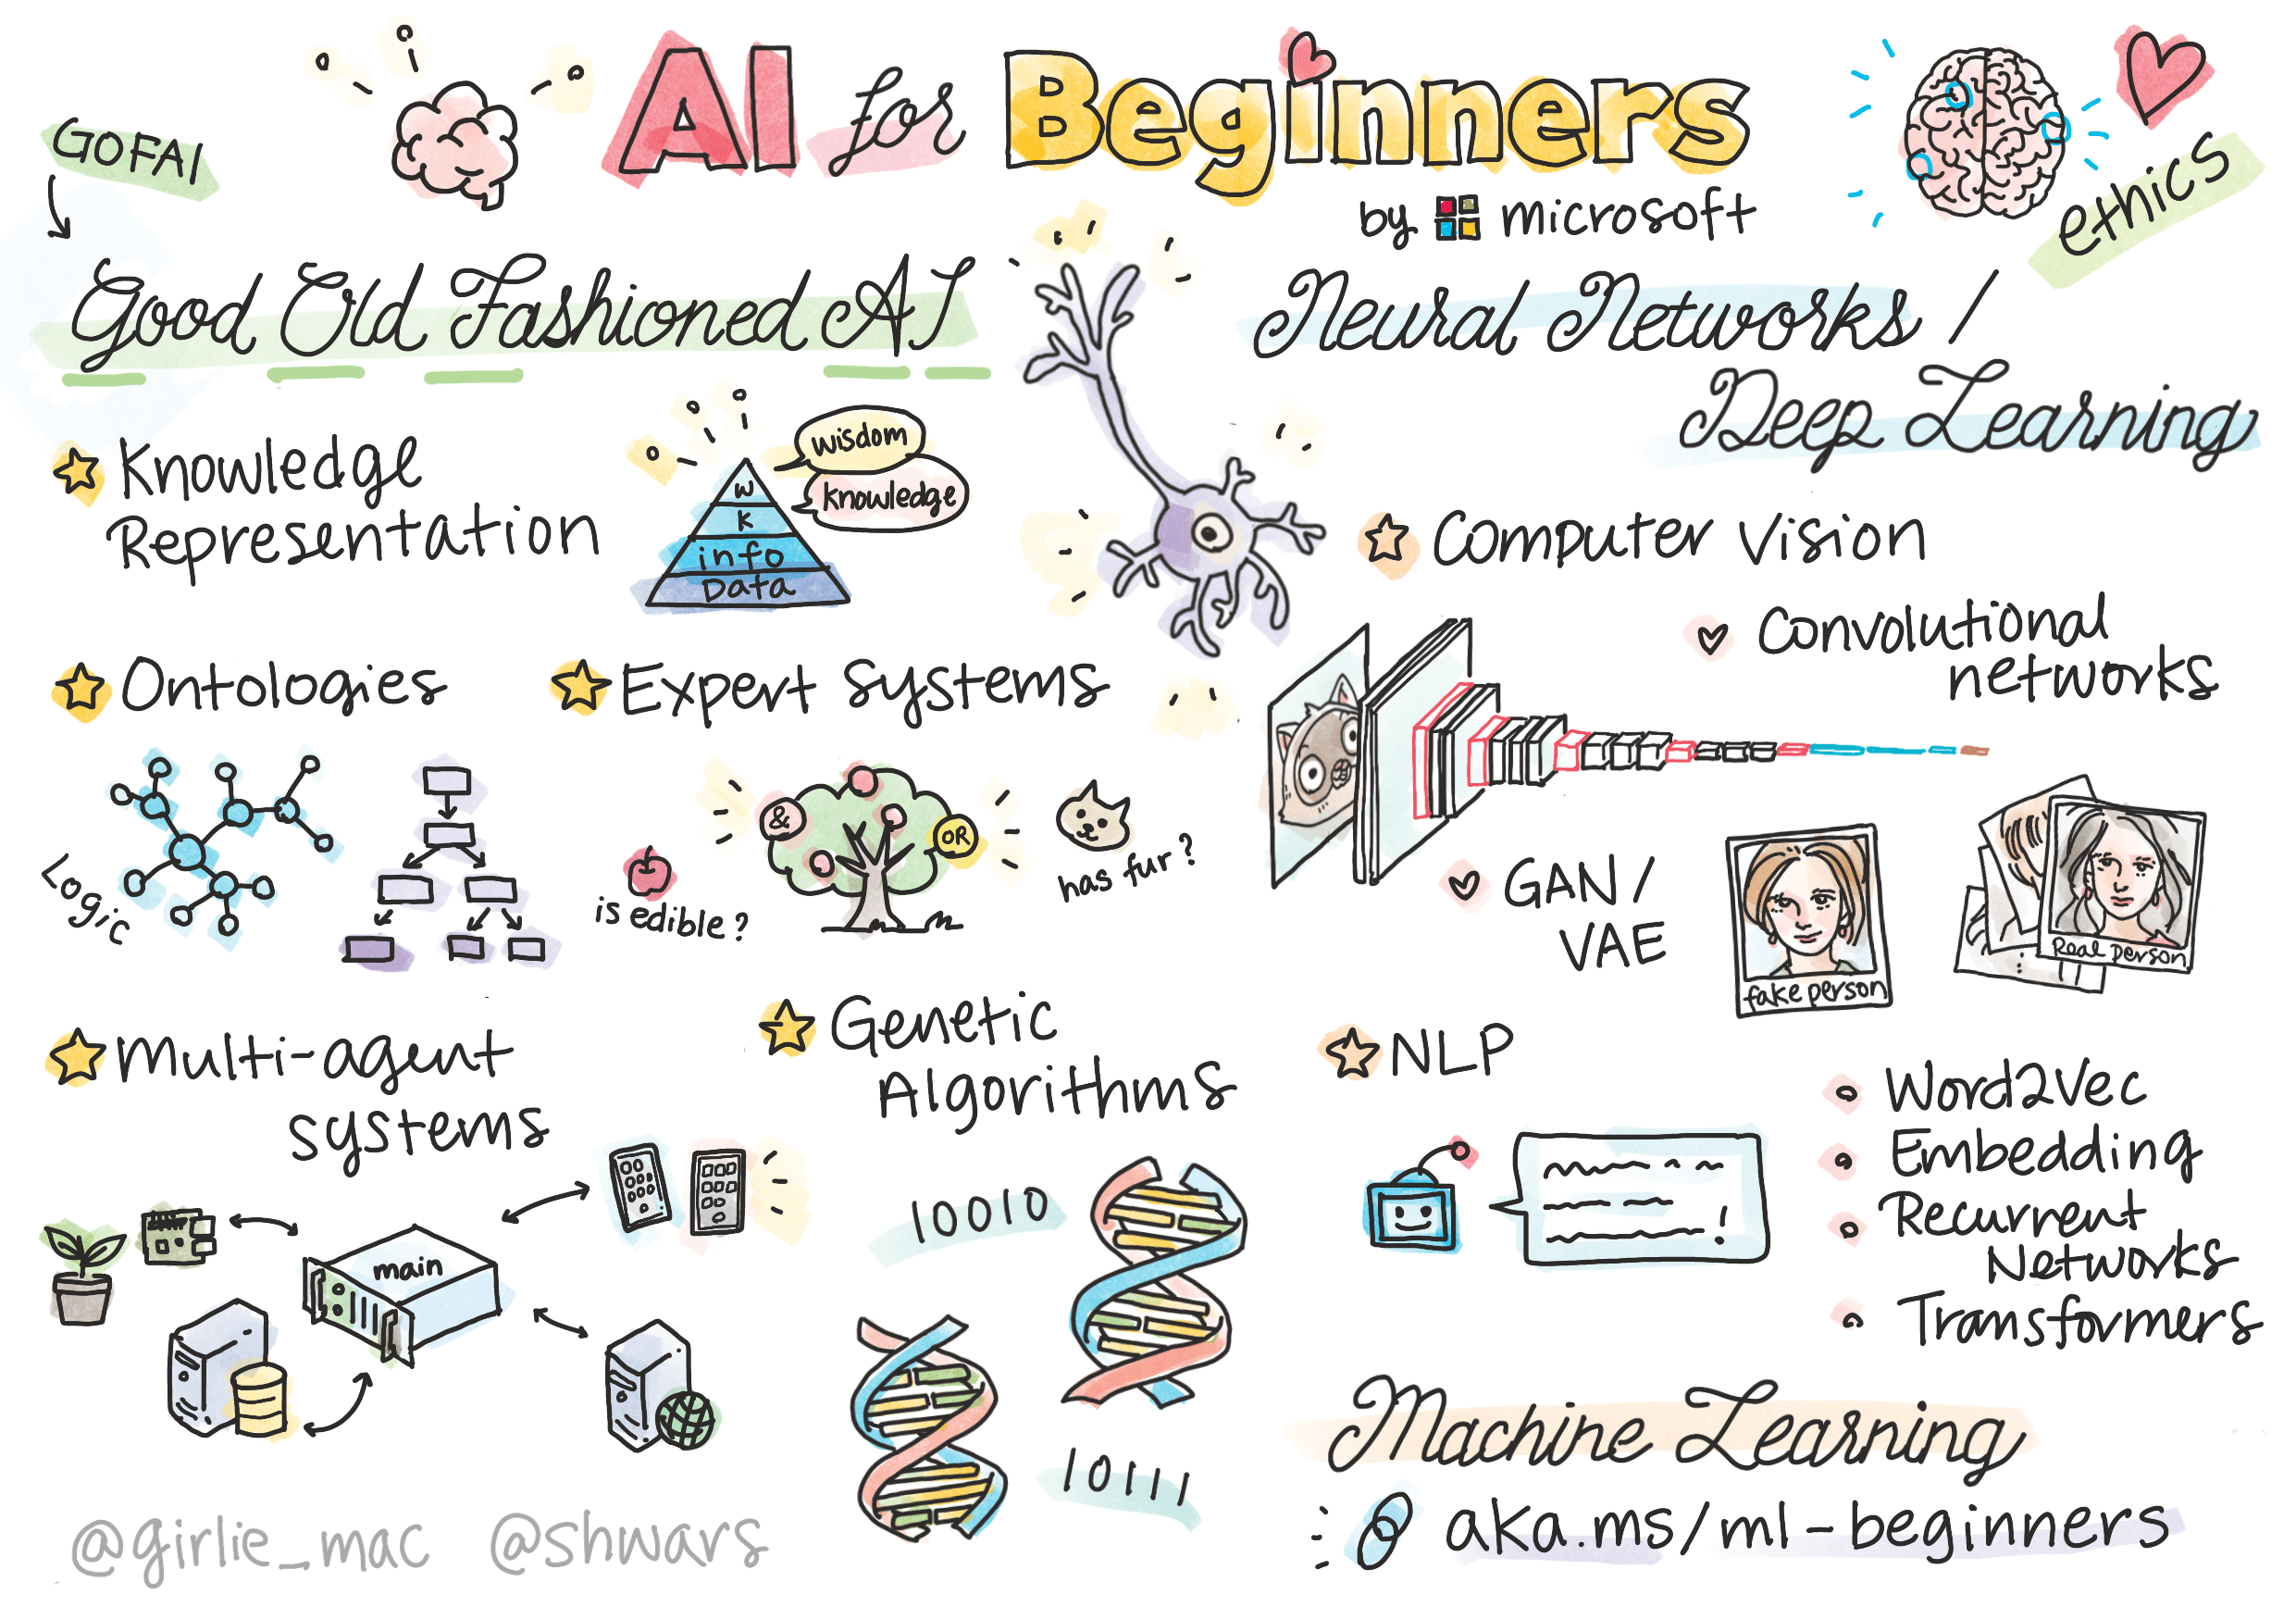 AI for Beginners
by microsoft
GOFAI
Good Old Fashioned AI
Knowledge
Representation
wisdom
knowledge
W
K
info
Data
Ontologies
Logic
Expert systems
&
OR
is edible?
has fur?
Multi-agent
systems
main
Genetic
Algorithms
10010
10111
@girlie_mac @shwars
ethics
Neural Networks /
Deep Learning
Computer Vision
Convolutional
networks
GAN /
VAE
fake person
Real person
NLP
!
Word2Vec
Embedding
Recurrent
Networks
Transformers
Machine Learning
aka.ms/ml-beginners